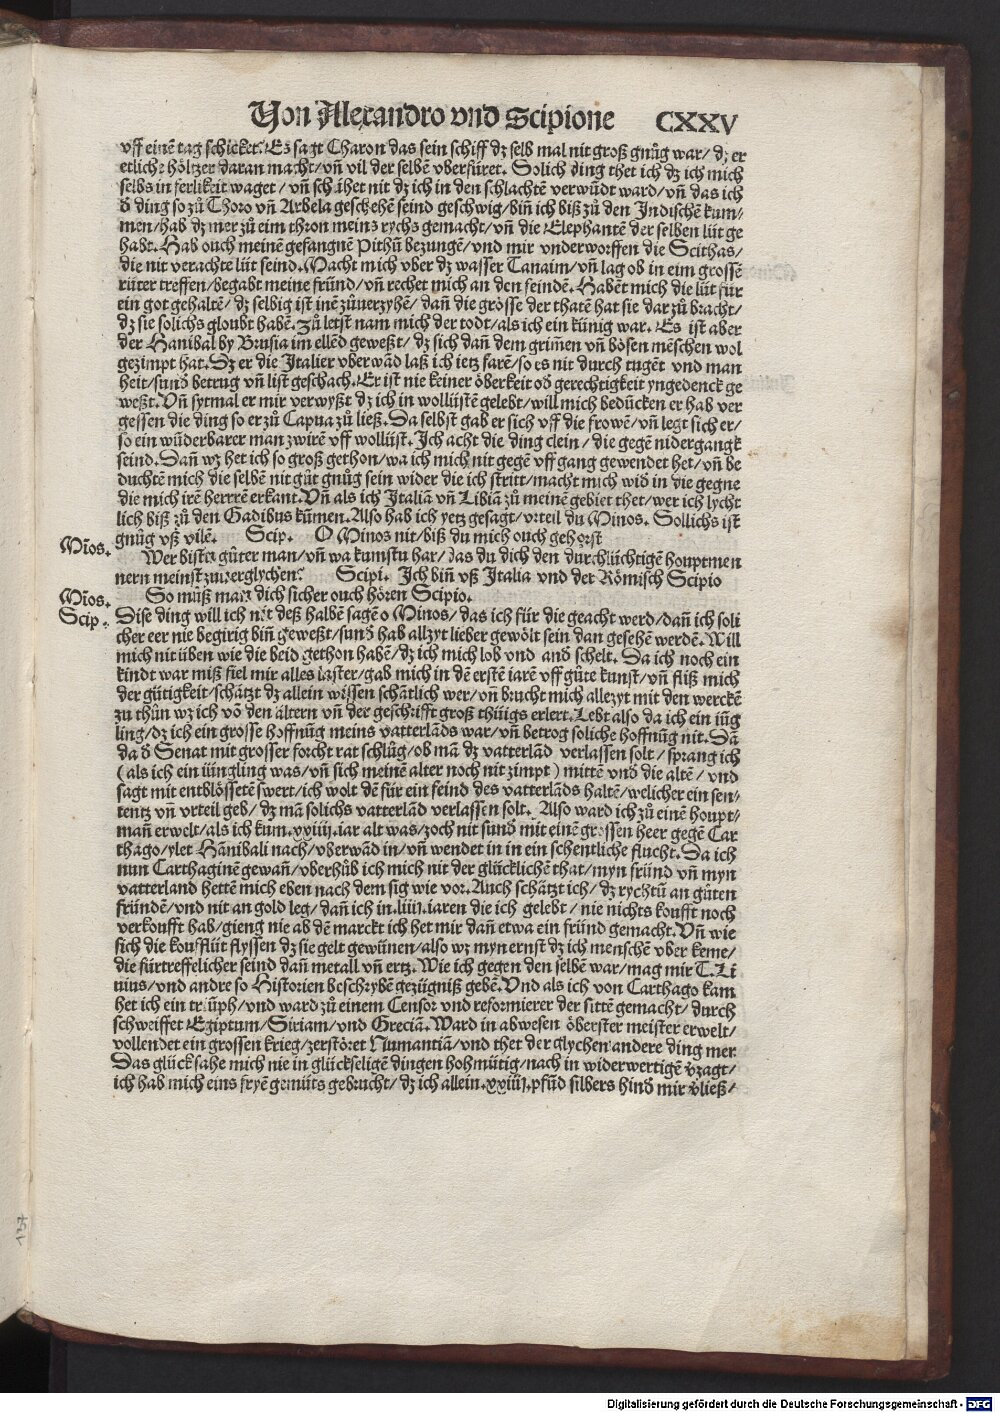 Von Alexandro vnd Scipione CXXV
vff einē tag schicket. Es sagt Charon das sein schiff dz selb mal nit groß gnůg war / dz er
etliche höltzer daran macht / vñ vil der selbē vberfüret. Solich ding thet ich dz ich mich
selbs in ferlikeit waget / vñ schühet nit dz ich in den schlachtē verwūdt ward / vñ das ich
d̄ ding so zů Thoro vñ Arbela geschehē seind geschwig / biñ ich biß zů den Indischē kum-
men / hab dz mer zů eim thron meins rychs gemacht / vñ die Elephantē der selben lüt ge
habt. Hab ouch meinē gefangnē Pithū bezungē / vnd mir vnderworffen die Scithas /
die nit verachte lüt seind. Macht mich vber dz wasser Tanaim / vñ lag ob in eim grossē
rüter treffen / begabt meine fründ / vñ rechet mich an den feindē. Habēt mich die lüt für
ein got gehaltē / dz selbig ist inē zůuerzyhē / dañ die grösse der thatē hat sie dar zů bracht /
dz sie solichs gloubt habē. Zů letst nam mich der todt / als ich ein künig war. Es ist aber
der Hanibal by Brusia im ellēd geweßt / dz sich dañ dem grim̄en vñ bösen mēschen wol
gezimpt hat. Dz er die Italier vberwād laß ich ietz farē / so es nit durch tugēt vnd man
heit / sund̄ betrug vñ list geschach. Er ist nie keiner öberkeit od̄ gerechtigkeit yngedenck ge
weßt. Vñ sytmal er mir verwyßt dz ich in wollüstē gelebt / will mich bedücken er hab ver
gessen die ding so er zů Capua zů ließ. Da selbst gab er sich vff die frowē / vñ legt sich er /
so ein wūderbarer man zwirē vff wollüst. Ich acht die ding clein / die gegē nidergangk
seind. Dañ wz het ich so groß gethon / wa ich mich nit gegē vff gang gewendet het / vñ be
duchtē mich die selbē nit gůt gnůg sein wider die ich stritt / macht mich wid̄ in die gegne
die mich irē herrē erkant. Vñ als ich Italiā vñ Libiā zů meinē gebiet thet / wer ich lycht
lich biß zů den Gadibus kūmen. Also hab ich yetz gesagt / vrteil du Minos. Sollichs ist
gnůg vß vilē. Scip. O Minos nit / biß du mich ouch gehörst
Mīos. Wer bistu gůter man / vñ wa kumstu har / das du dich den durchlüchtigē houptmen
nern meinst zuuerglychen? Scipi. Ich biñ vß Italia vnd der Römisch Scipio
Mīos. So můß man dich sicher ouch hören Scipio.
Scip. Dise ding will ich nit deß halbē sagē o Minos / das ich für die geacht werd / dañ ich soli
cher eer nie begirig biñ geweßt / sund̄ hab allzyt lieber gewölt sein dan gesehē werdē. Will
mich nit üben wie die beid gethon habē / dz ich mich lob vnd and̄ schelt. Da ich noch ein
kindt war miß fiel mir alles laster / gab mich in dē erstē iarē vff gůte kunst / vñ fliß mich
der gütigkeit / schätzt dz allein wissen schātlich wer / vñ brucht mich allezyt mit den werckē
zu thůn wz ich vō den ältern vñ der geschrifft groß thüigs erlert. Lebt also da ich ein iüg
ling / dz ich ein grosse hoffnūg meins vatterlāds war / vñ betrog soliche hoffnūg nit. Dā
da d̄ Senat mit grosser forcht rat schlůg / ob mā dz vatterlād verlassen solt / sprang ich
( als ich ein iüngling was / vñ sich meinē alter noch nit zimpt ) mittē vnd̄ die altē / vnd
sagt mit entblössetē swert / ich wolt dē für ein feind des vatterlāds haltē / welicher ein sen-
tentz vñ vrteil geb / dz mā solichs vatterlād verlassen solt. Also ward ich zů einē houpt-
mañ erwelt / als ich kum .xxiiij. iar alt was / zoch nit sund̄ mit einē grossen heer gegē Car
thago / ylet Hānibali nach / vberwād in / vñ wendet in in ein schentliche flucht. Da ich
nun Carthaginē gewañ / vberhůb ich mich nit der glücklichē that / myn fründ vñ myn
vatterland hettē mich eben nach dem sig wie vor. Auch schätzt ich / dz rychtū an gůten
fründē / vnd nit an gold leg / dañ ich in .liiij. iaren die ich gelebt / nie nichts koufft noch
verkoufft hab / gieng nie ab dē marckt ich het mir dañ etwa ein fründ gemacht. Vñ wie
sich die kouflüt flyssen dz sie gelt gewūnen / also wz myn ernst dz ich menschē vber keme /
die fürtreffelicher seind dañ metall vñ ertz. Wie ich gegen den selbē war / mag mir T. Li
uius / vnd andre so Historien beschrybē gezügniß gebē. Vnd als ich von Carthago kam
het ich ein triūph / vnd ward zů einem Censor vnd reformierer der sittē gemacht / durch
schweiffet Egiptum / Siriam / vnd Greciā. Ward in abwesen öberster meister erwelt /
vollendet ein grossen krieg / zerstöret Numantiā / vnd thet der glychen andere ding mer
Das glück sahe mich nie in glückseligē dingen hohmütig / nach in widerwertigē v̄zagt /
ich hab mich eins fryē gemüts gebrucht / dz ich allein .xxiiij. pfūd silbers hind̄ mir v̄ließ /
Digitalisierung gefördert durch die Deutsche Forschungsgemeinschaft - DFG